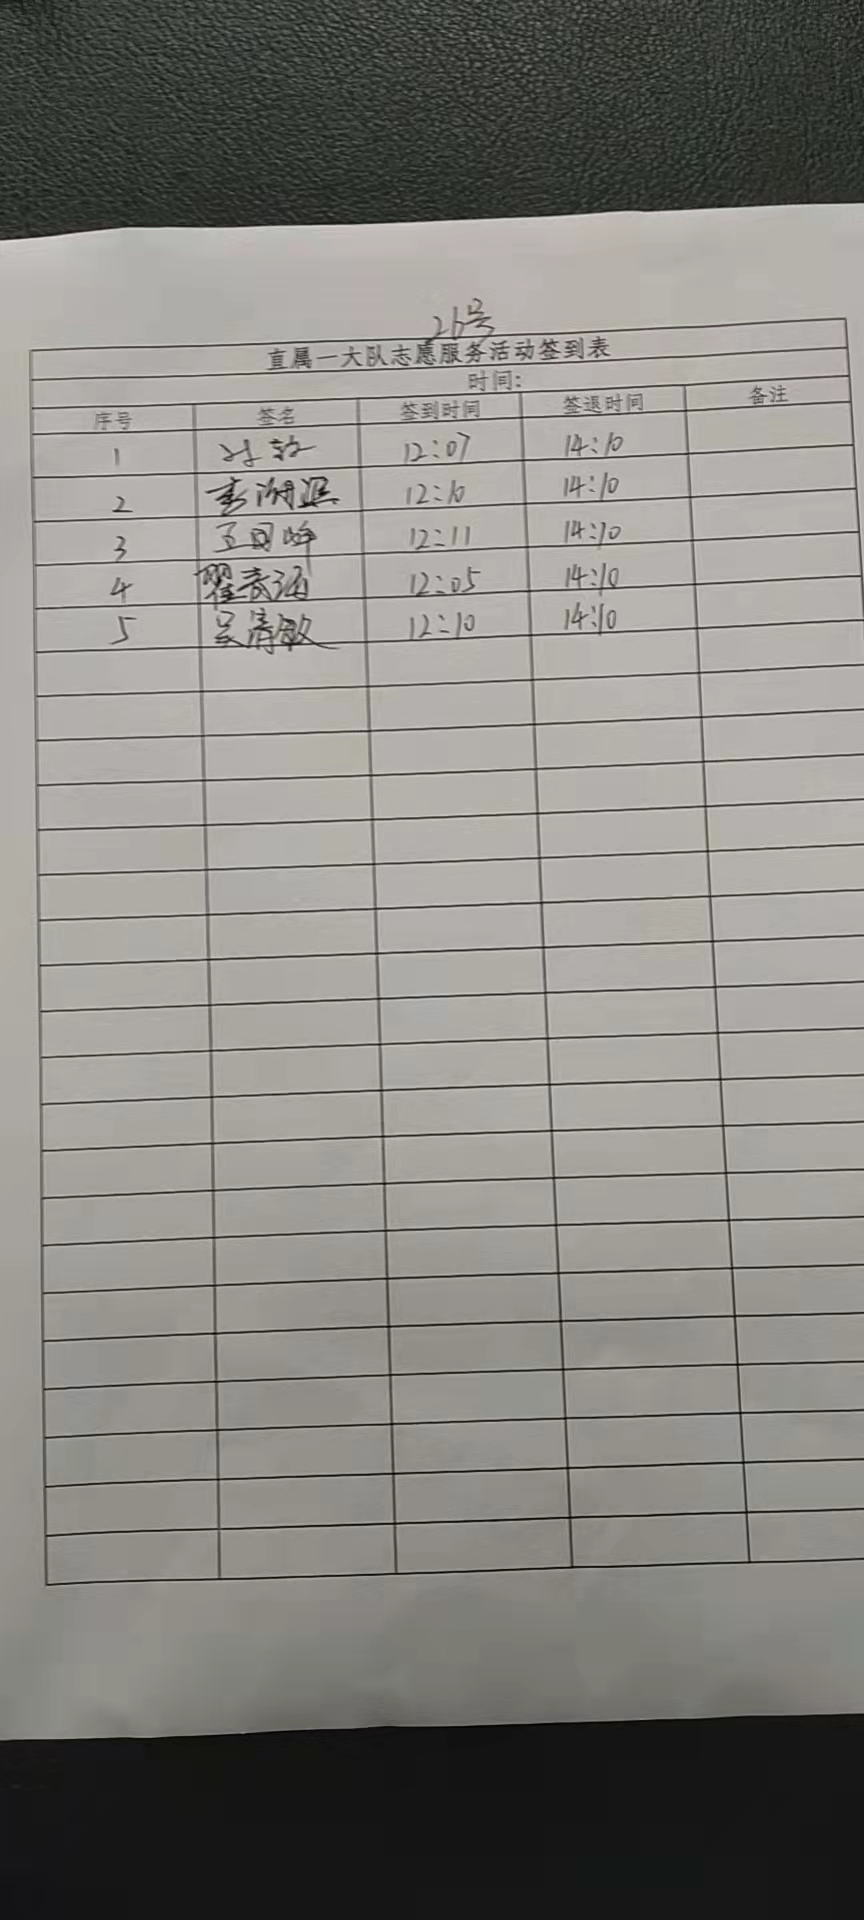 26号
直属一大队志愿服务活动签到表
时间:
序号 签名 签到时间 签退时间 备注
1 12:07 14:10
2 李 12:10 14:10
3 王国峰 12:11 14:10
4 翟 12:05 14:10
5 吴清敏 12:10 14:10